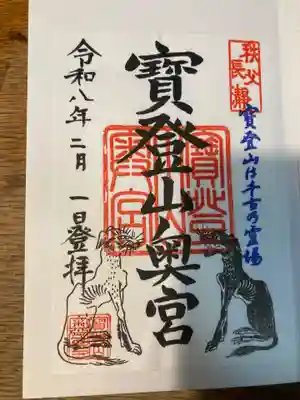 秩父
長瀞
寶登山は千古の霊場
寶登山奥宮
令和八年二月一日登拝